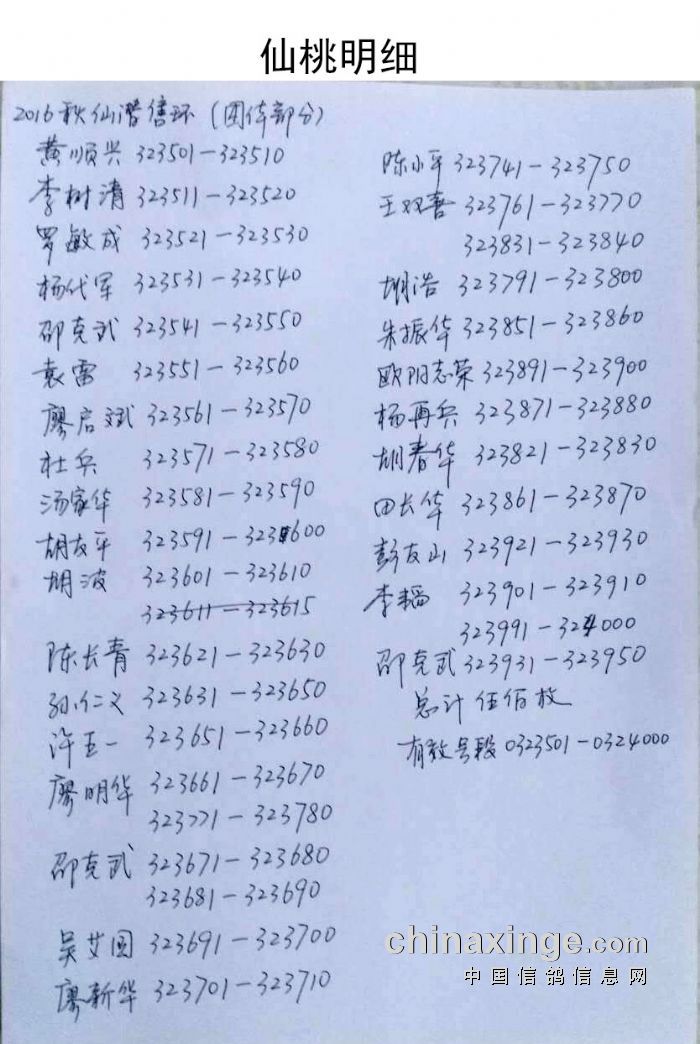 仙桃明细
2016秋仙潜售环(团体部分)
黄顺兴 323501-323510
李树清 323511-323520
罗敏成 323521-323530
杨代军 323531-323540
邵克武 323541-323550
袁雷 323551-323560
廖启斌 323561-323570
杜兵 323571-323580
汤家华 323581-323590
胡友平 323591-323600
胡波 323601-323610
323611-323615
陈长青 323621-323630
孙仁义 323631-323650
许五一 323651-323660
廖明华 323661-323670
323771-323780
邵克武 323671-323680
323681-323690
吴艾国 323691-323700
廖新华 323701-323710
陈小平 323741-323750
王双喜 323761-323770
323831-323840
胡浩 323791-323800
朱振华 323851-323860
欧阳志荣 323891-323900
杨再兵 323871-323880
胡春华 323821-323830
田长华 323861-323870
彭友山 323921-323930
李韬 323901-323910
323991-324000
邵克武 323931-323950
总计伍佰枚
有效号段 0323501-0324000
chinaxinge.com
中国信鸽信息网